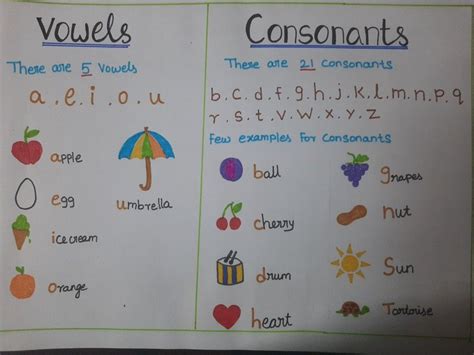 Vowels
There are 5 Vowels
a . e . i . o . u
apple
egg
ice cream
orange
umbrella
Consonants
There are 21 consonants
b . c . d . f . g . h . j . k . l . m . n . p . q
r . s . t . v . w . x . y . z
Few examples for consonants
ball
cherry
drum
heart
grapes
nut
Sun
Tortoise